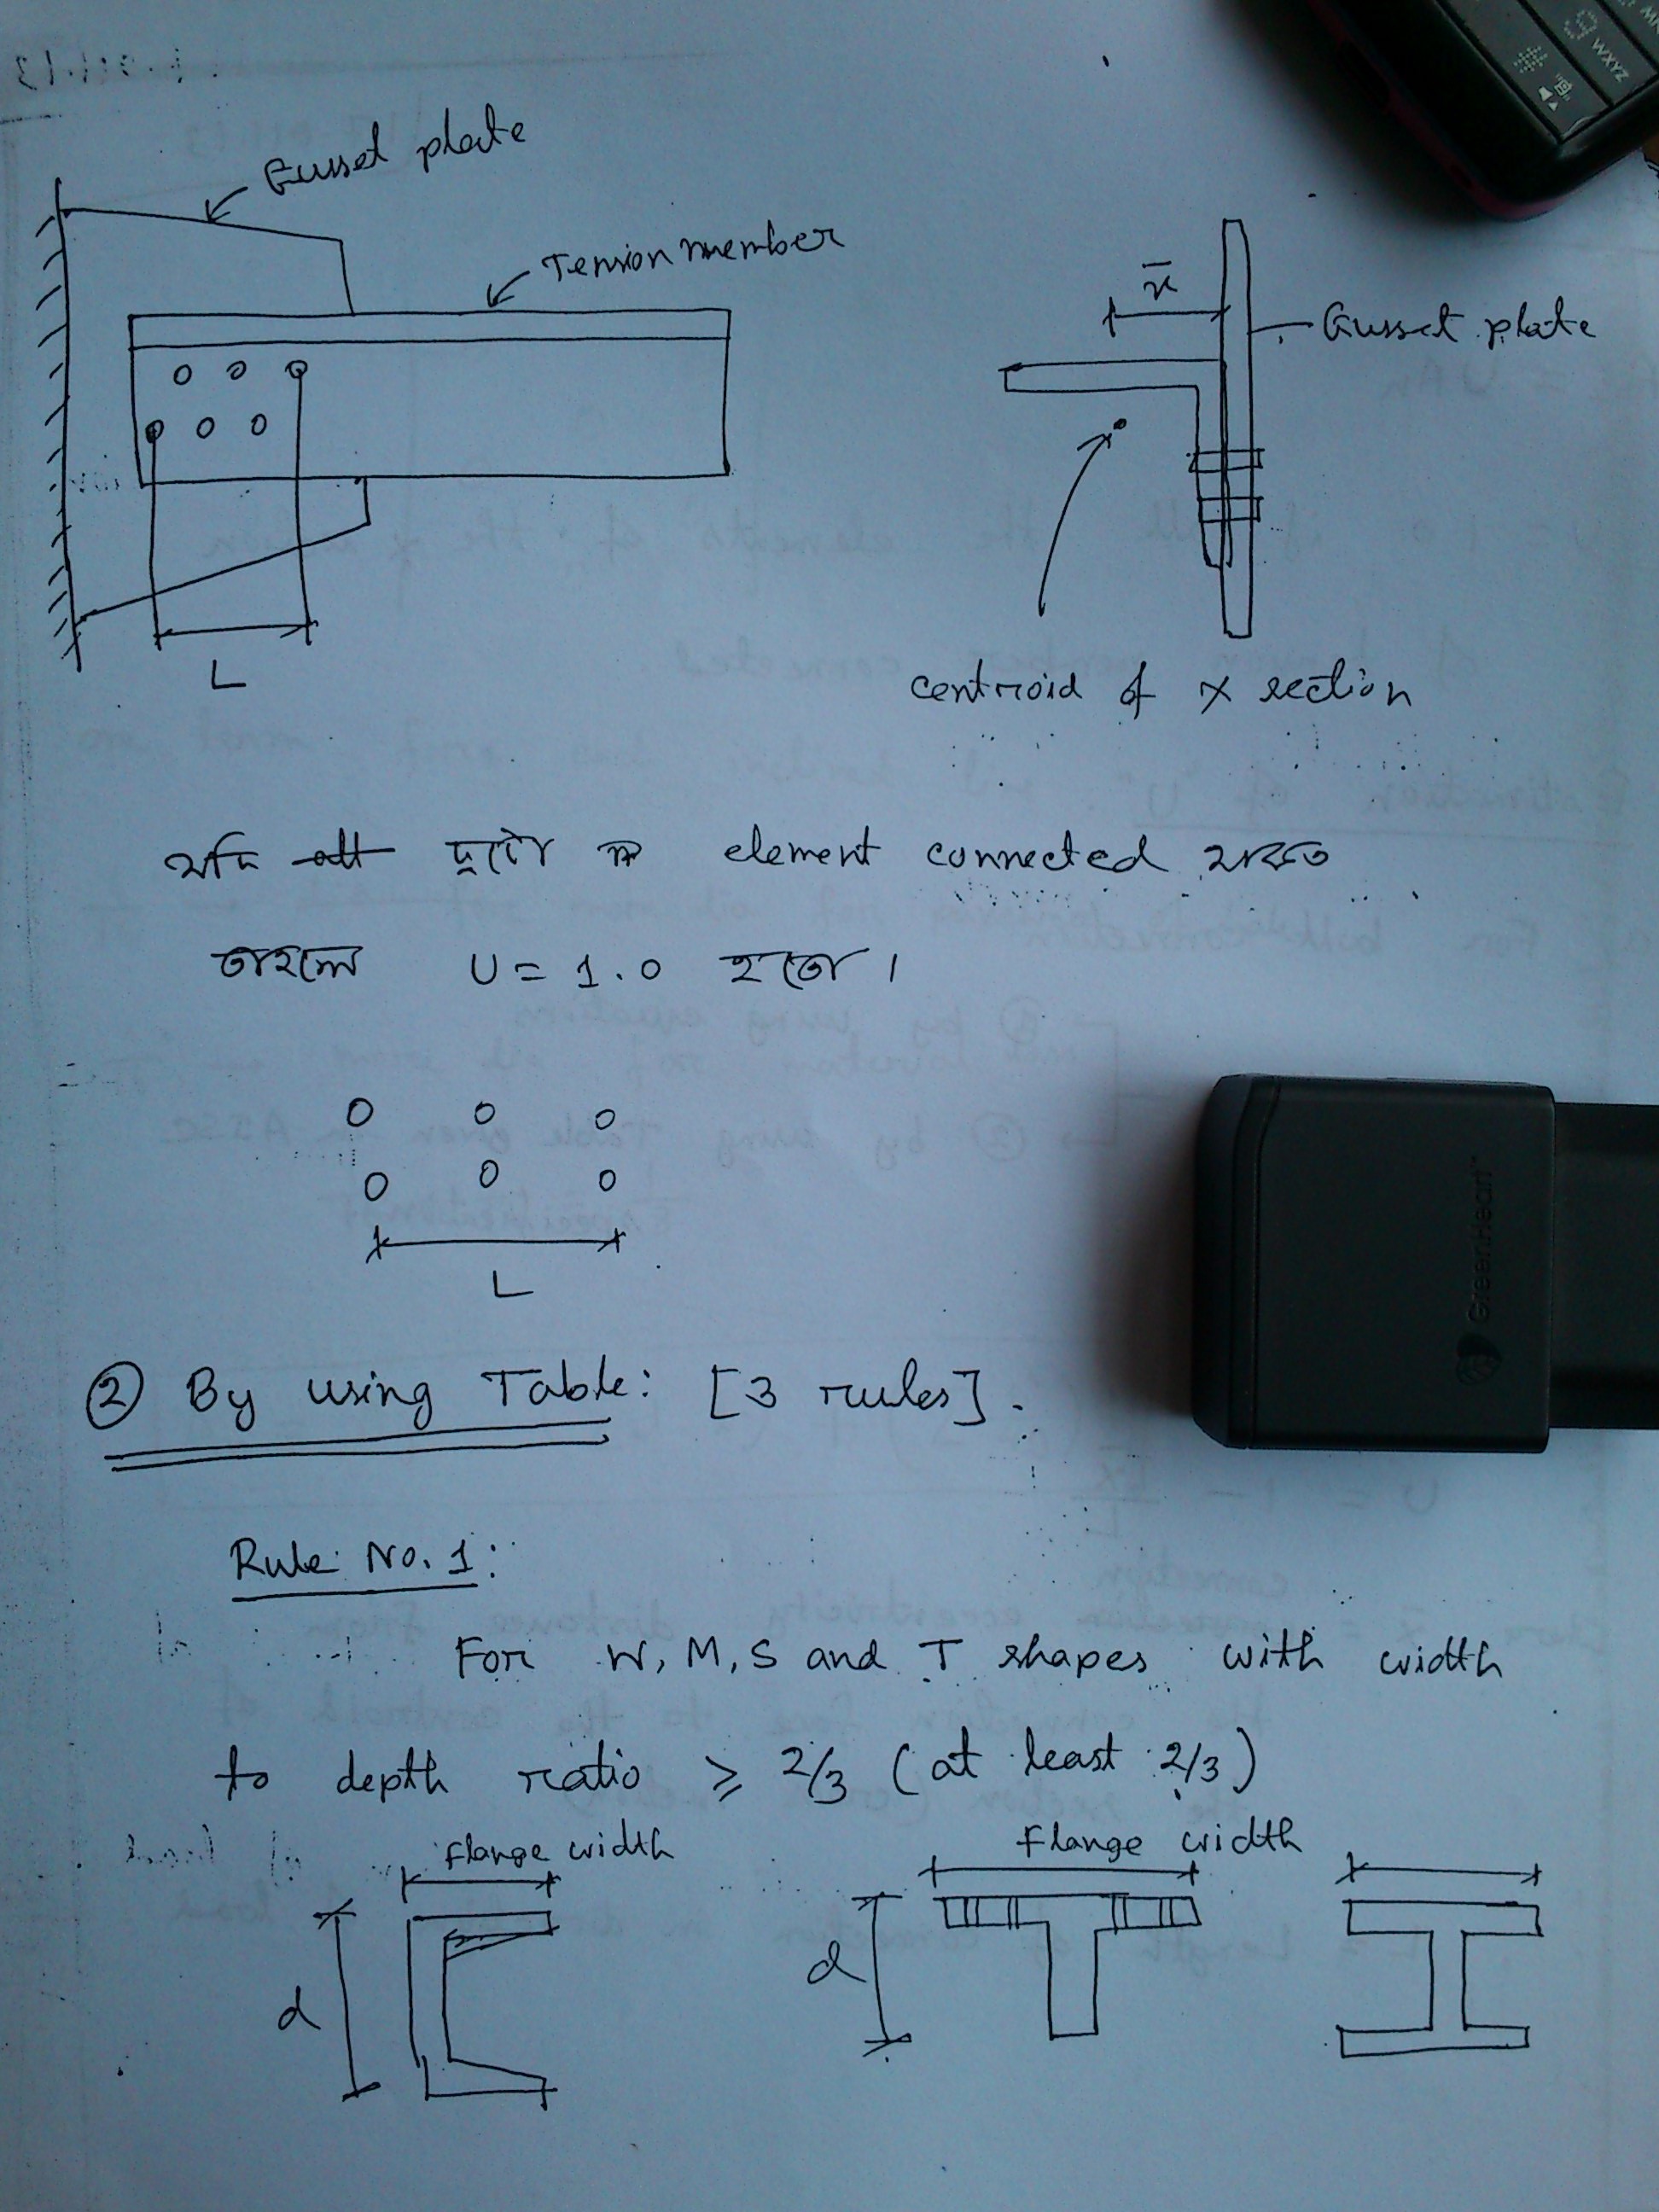 Gusset plate
Tension member
x̄
Gusset plate
L
centroid of X section
যদি all দুটো element connected থাকত
তাহলে U = 1.0 হতো।
L
② By using Table: [3 rules].
Rule No. 1:
For W, M, S and T shapes with width
to depth ratio ≥ 2/3 (at least 2/3)
Flange width
Flange width
d
d
GreenHeart™
9 WXYZ
#